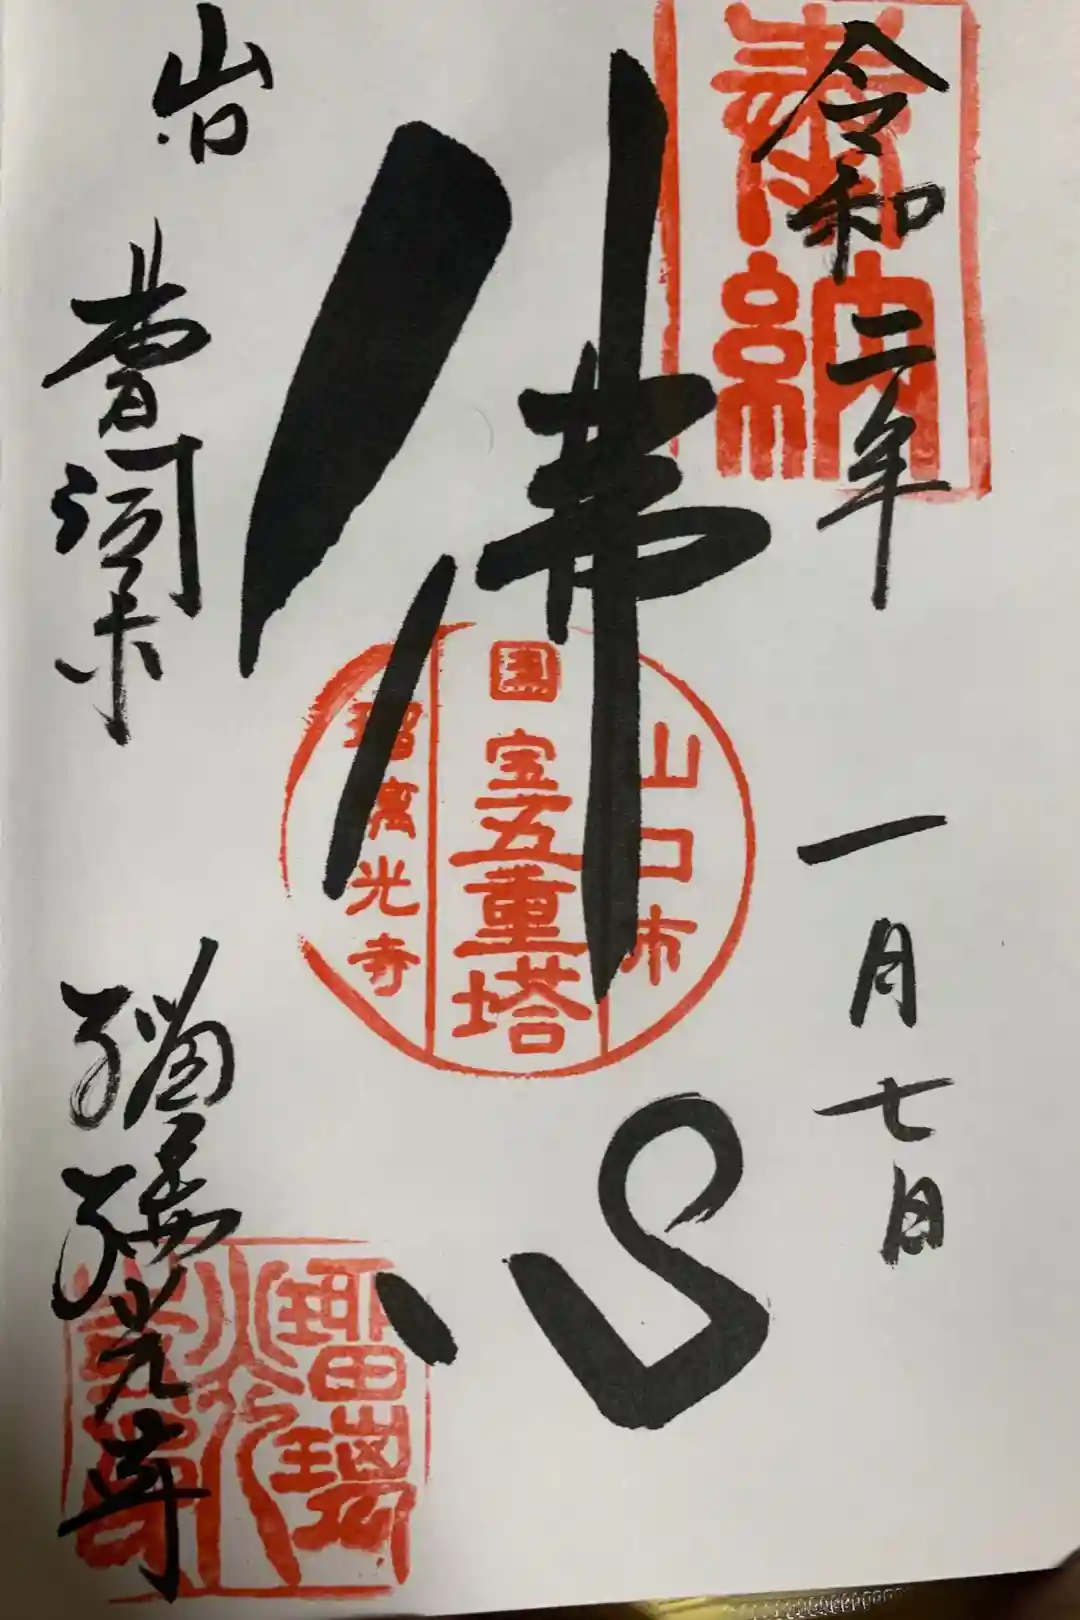 奉納
令和二年 一月七日
佛心
山口市
國宝五重塔
瑠璃光寺
山口 曹洞宗 瑠璃光寺
瑠璃光寺